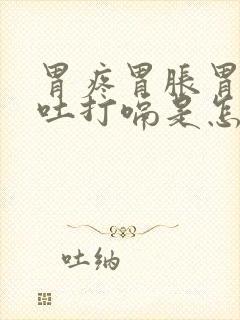 胃疼胃胀胃
吐打嗝是怎
吐纳